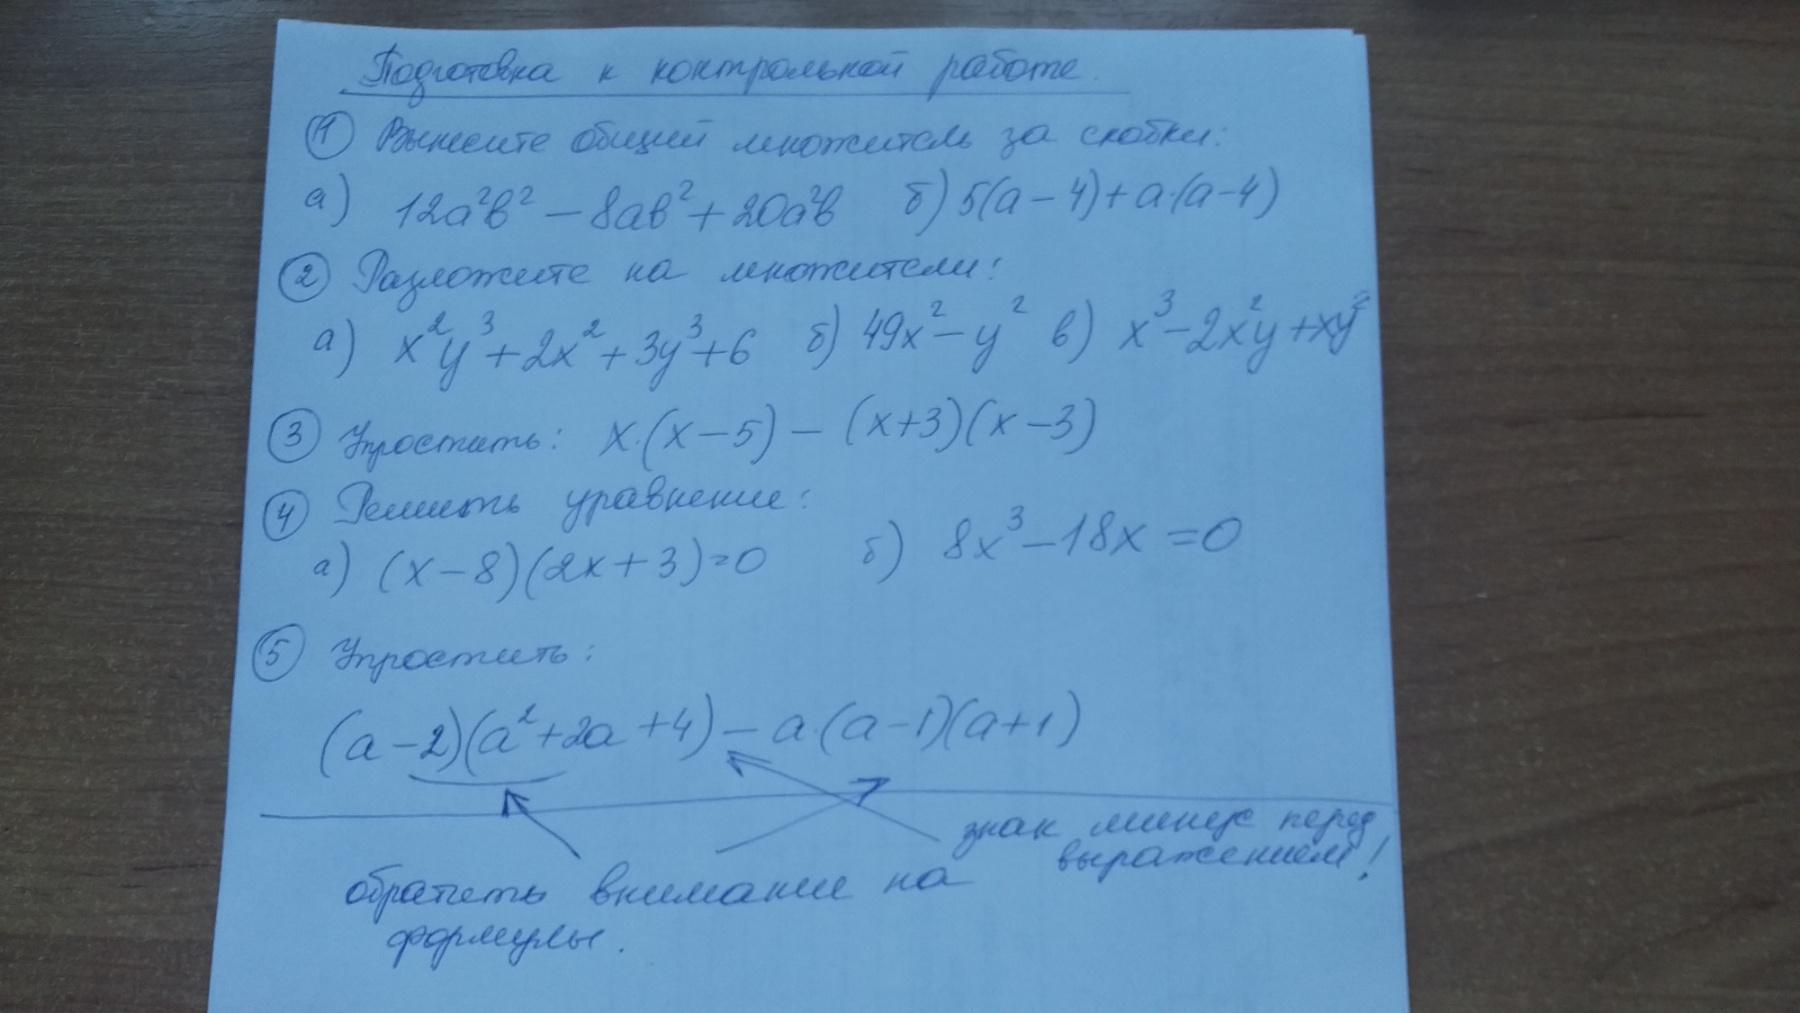 Подготовка к контрольной работе.
① Вынесите общий множитель за скобки:
а) 12a²b² − 8ab² + 20a²b б) 5(a − 4) + a·(a − 4)
② Разложите на множители:
а) x²y³ + 2x² + 3y³ + 6 б) 49x² − y² в) x³ − 2x²y + xy²
③ Упростить: x·(x − 5) − (x + 3)(x − 3)
④ Решить уравнение:
а) (x − 8)(2x + 3) = 0 б) 8x³ − 18x = 0
⑤ Упростить:
(a − 2)(a² + 2a + 4) − a·(a − 1)(a + 1)
знак минус перед
выражением!
обратить внимание на
формулы.